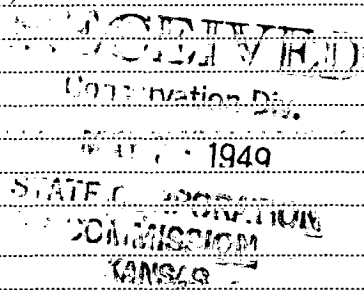 RECEIVED
Conservation Div.
1949
STATE CORPORATION
COMMISSION
KANSAS